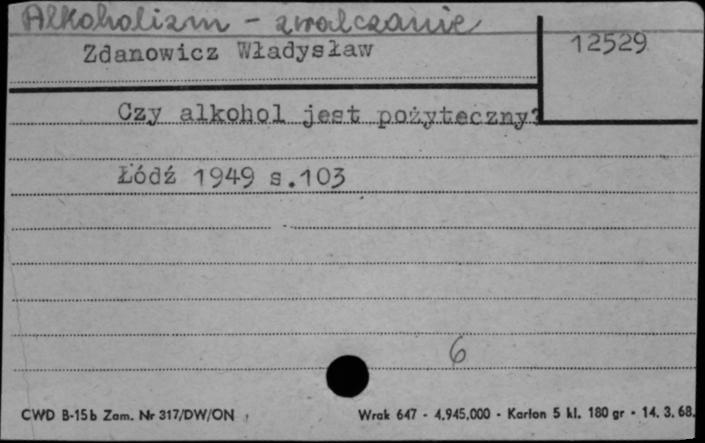 Alkoholizm - zwalczanie
Zdanowicz Władysław
12529
Czy alkohol jest pożyteczny?
Łódź 1949 s.103
6
CWD B-15b Zam. Nr 317/DW/ON
Wrak 647 - 4.945.000 - Karton 5 kl. 180 gr - 14. 3. 68.